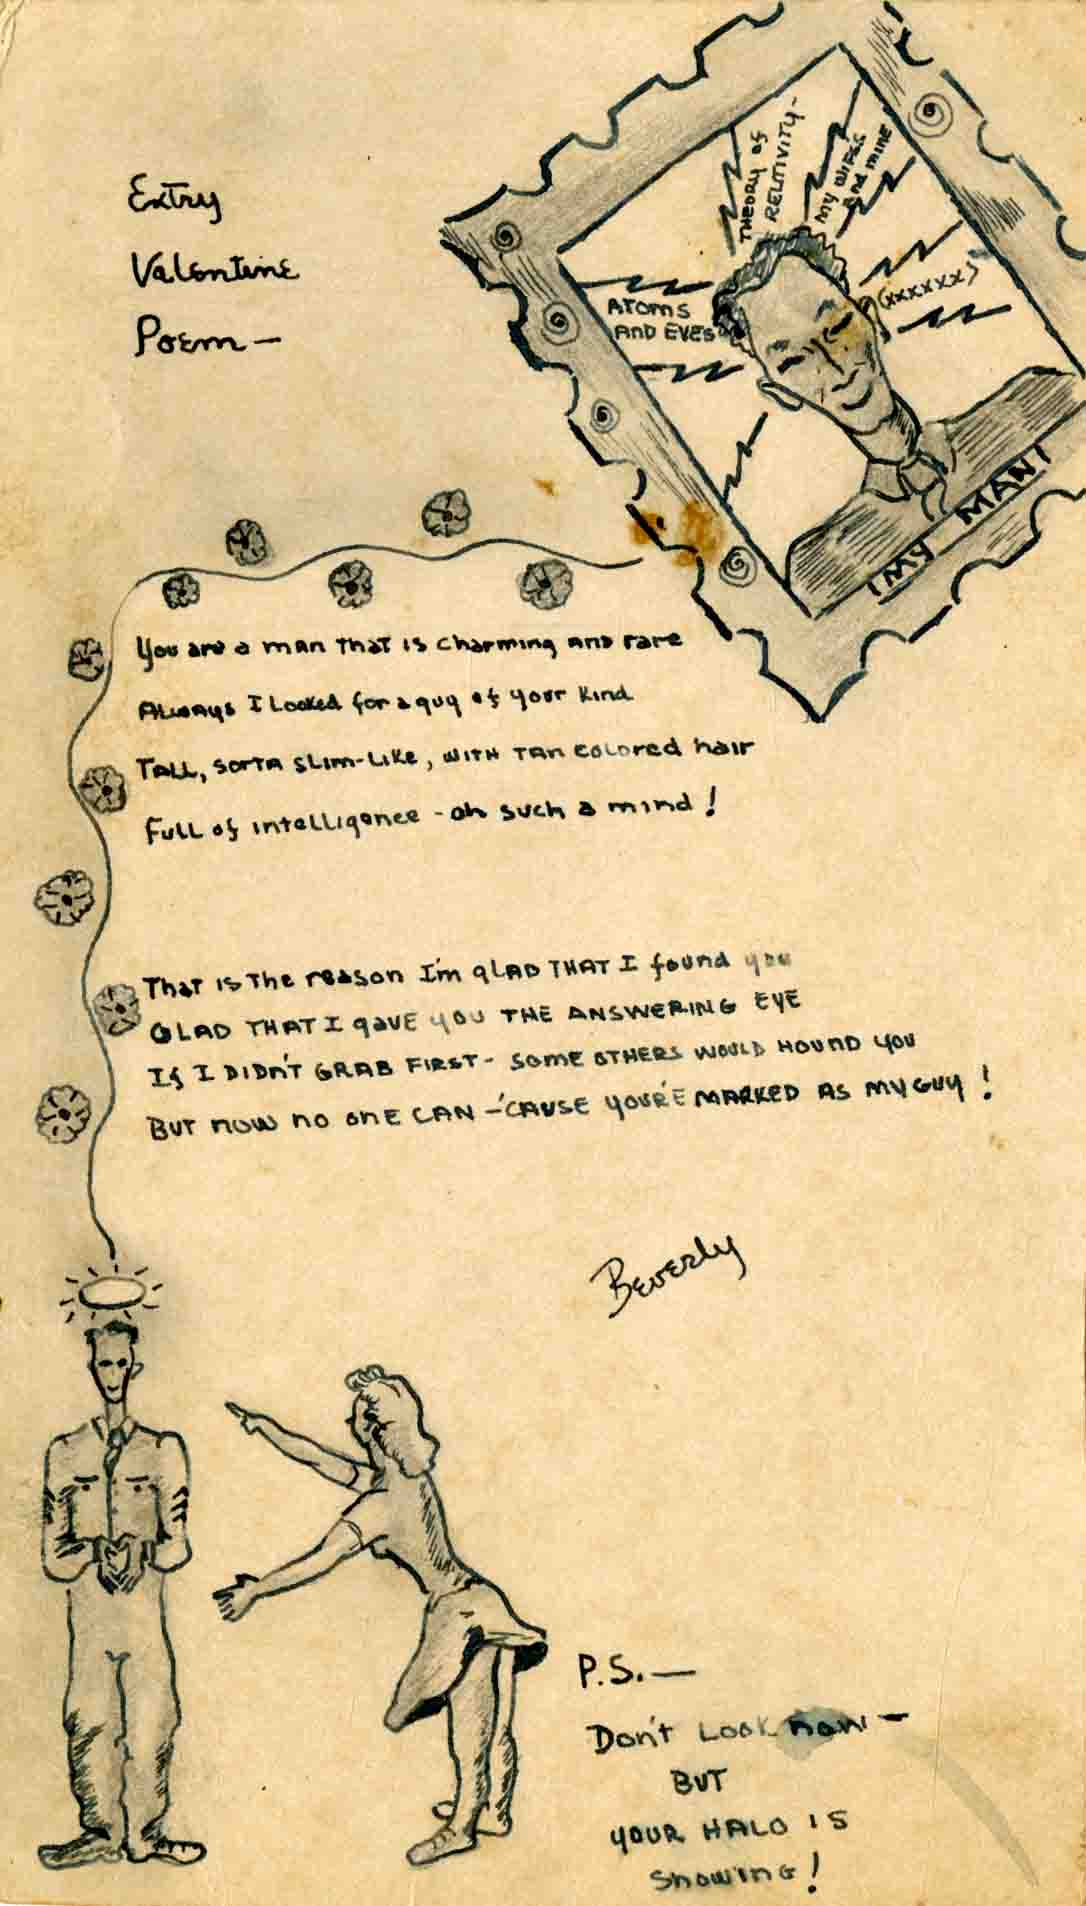 Extry
Valentine
Poem—
THEORY OF
RELITIVITY-
MY WIFES
And MINE
ATOMS
AND EVES
(xxxxxx)
(MY MAN)
You are a man that is charming and rare
Always I looked for a guy of your kind
Tall, sorta slim-like, with tan colored hair
Full of intelligence - oh such a mind!
That is the reason I'm glad that I found you
Glad that I gave you the answering eye
If I didn't grab first - some others would hound you
But now no one can - 'cause you're marked as my guy!
Beverly
P.S.—
Don't look now—
BUT
your halo is
showing!